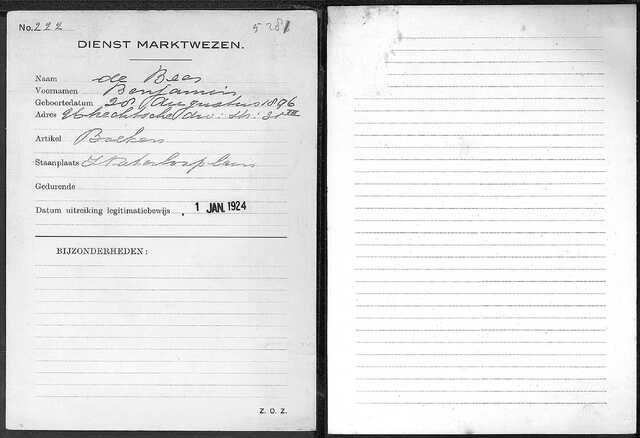 No. 222 5281
DIENST MARKTWEZEN.
Naam de Beer
Voornamen Benjamin
Geboortedatum 28 Augustus 1876
Adres Utrechtsche dw: str: 30 III
Artikel Boeken
Staanplaats Waterlooplein
Gedurende
Datum uitreiking legitimatiebewijs 1 JAN. 1924
BIJZONDERHEDEN:
Z. O. Z.